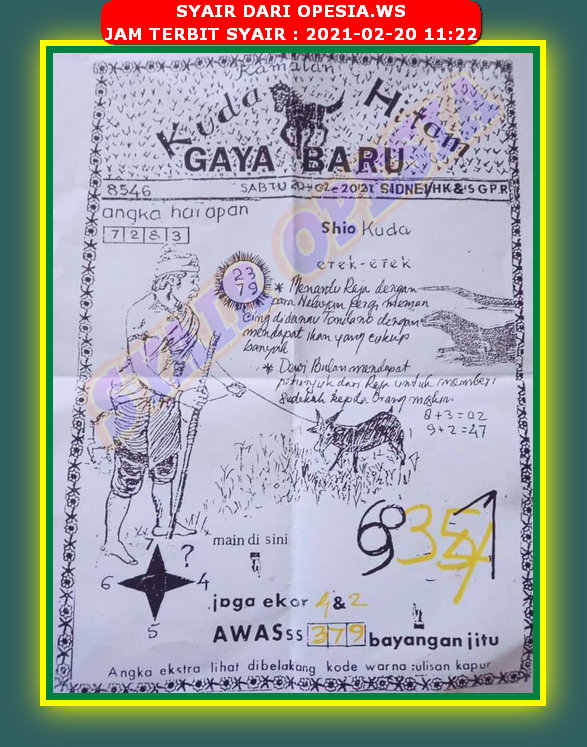 SYAIR DARI OPESIA.WS
JAM TERBIT SYAIR : 2021-02-20 11:22
Ramalan
Kuda Hitam
GAYA BARU
8546
SABTU 20-02-2021 SIDNEI/HK&SGPR
angka harapan
7283
Shio Kuda
eTek-eTek
23
79
* Menantu Raja dengan
para Nelayan pergi meman
cing di danau Tondano dengan
mendapat ikan yang cukup
banyak
* Dewi Bulan mendapat
petunjuk dari Raja untuk memberi
sedekah kepada orang miskin.
8+3=02
9+2=47
main di sini
7
?
6
4
5
jaga ekor 4&2
AWASss 379 bayangan jitu
Angka ekstra lihat dibelakang kode warna tulisan kapur